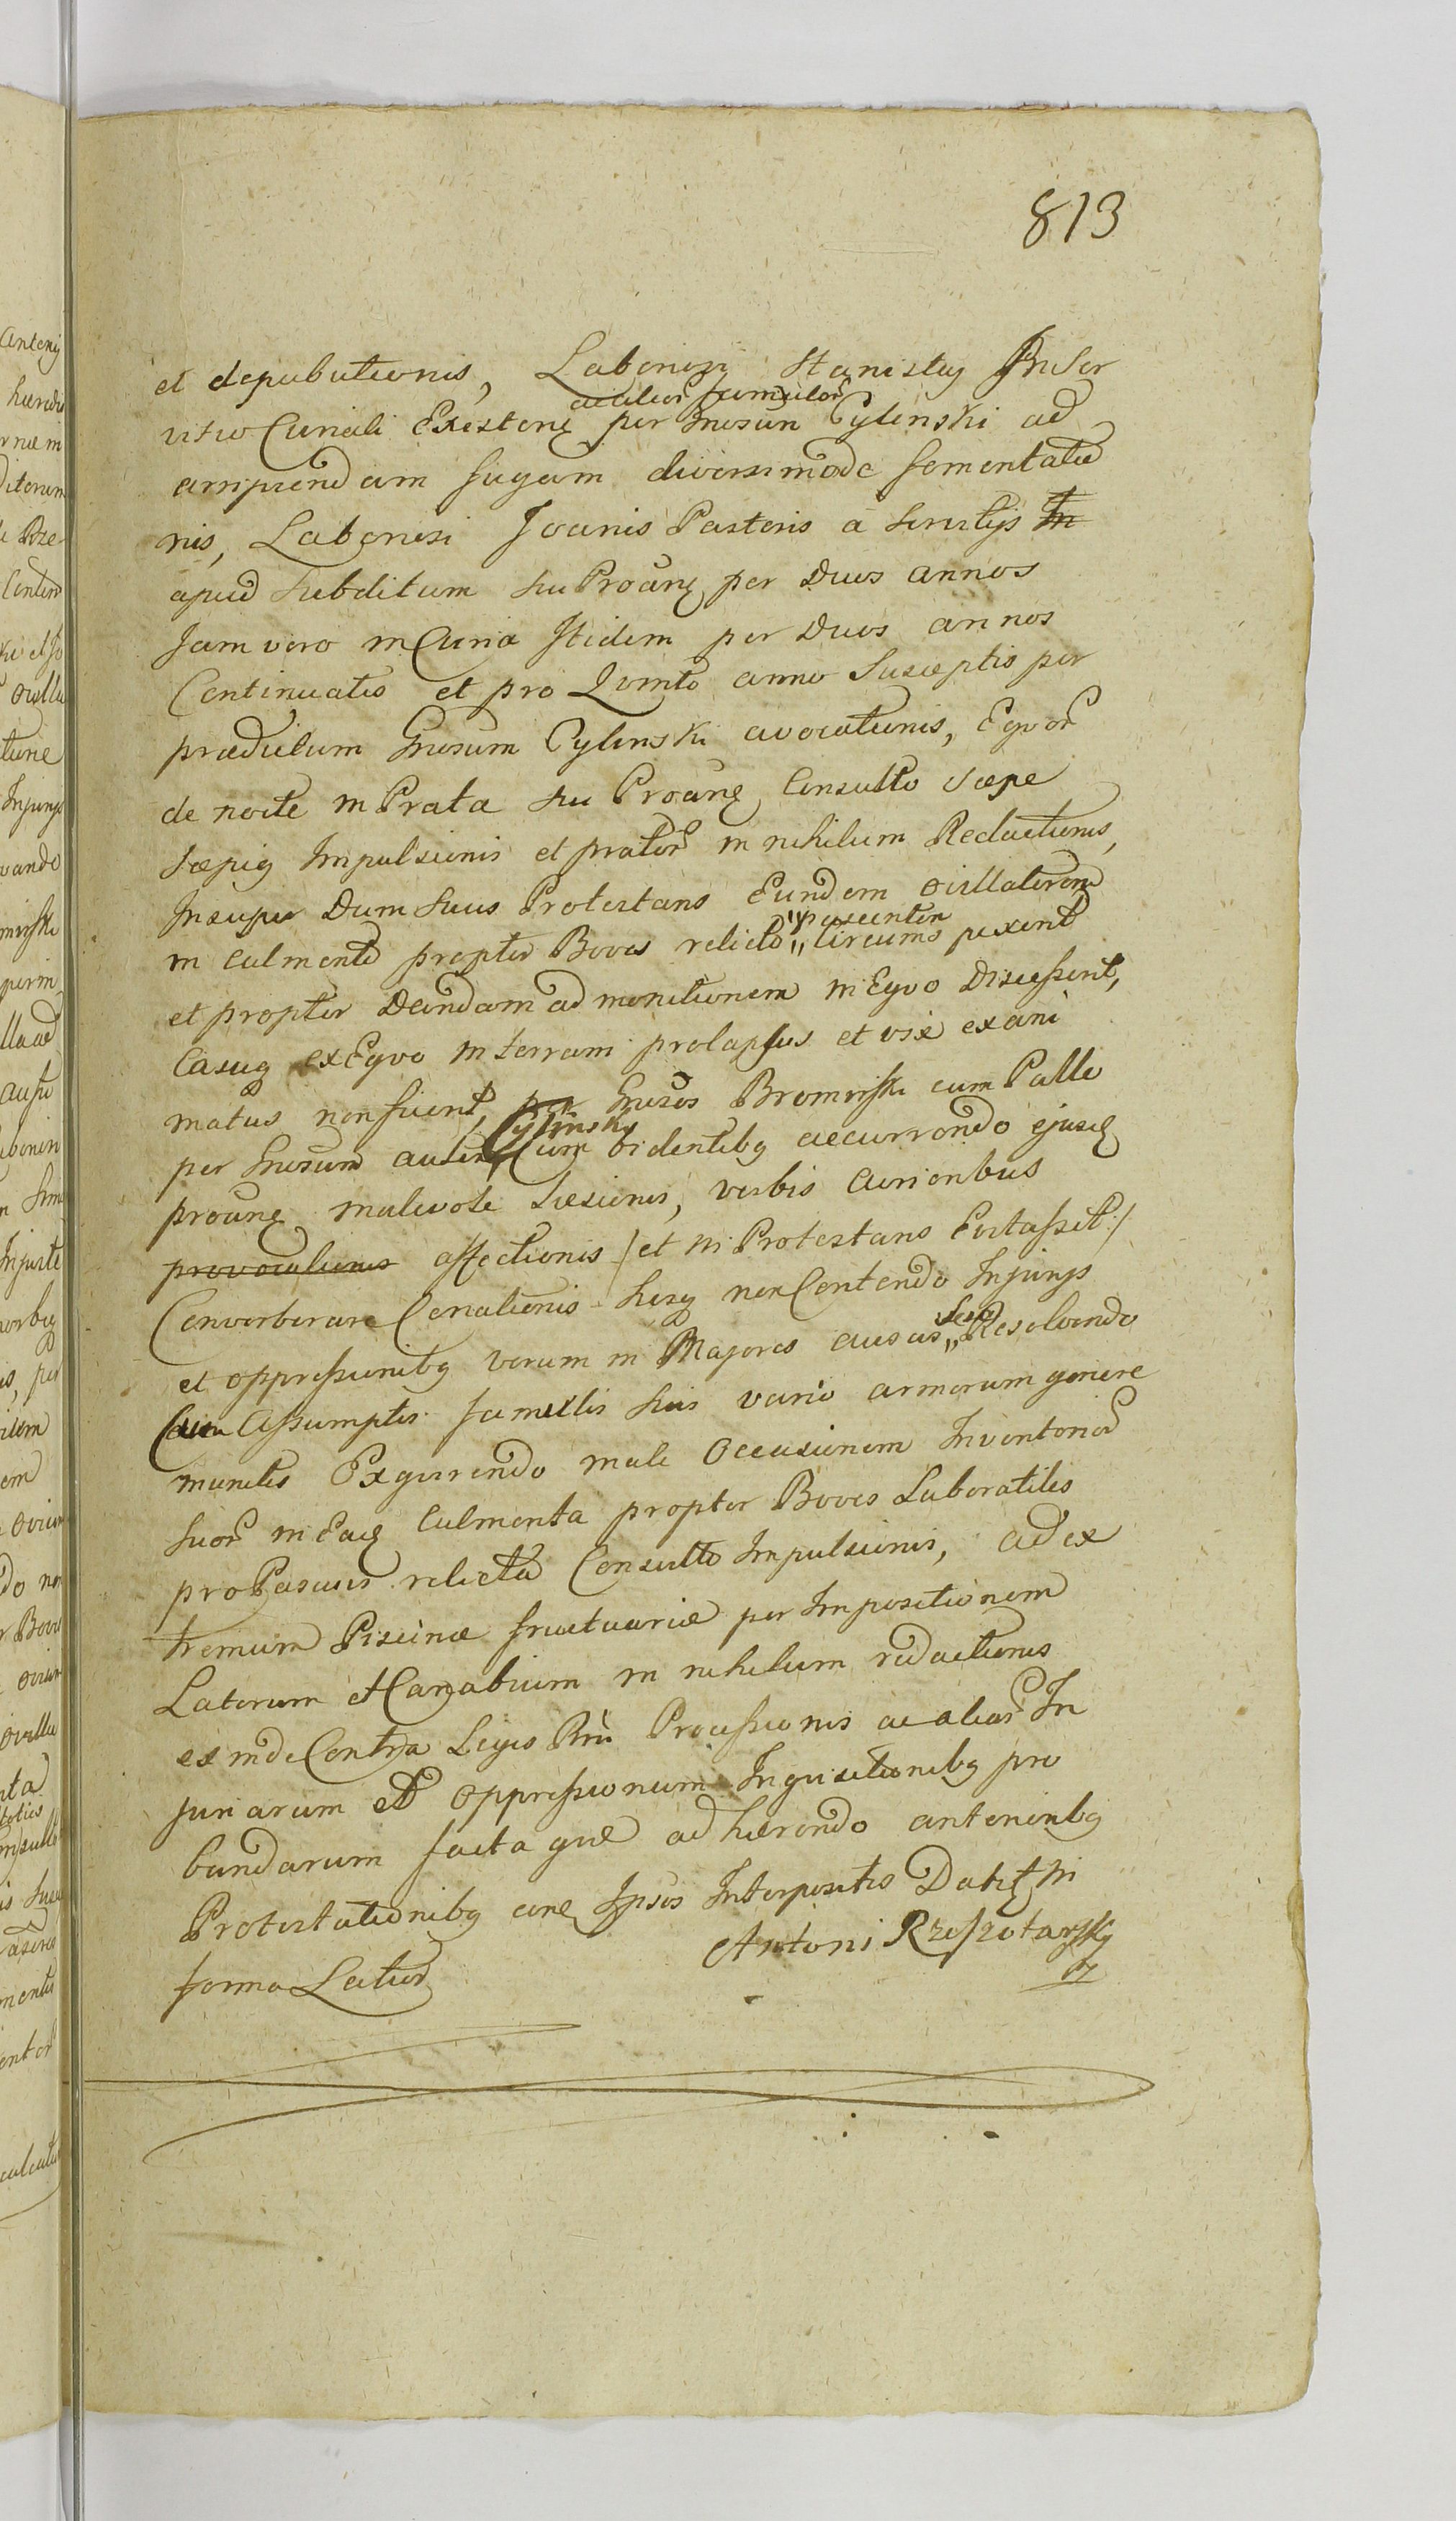 813
et depabutionis, Laboriosi Stanislaj Inser
aulicor famulor
vitio Curiali Existenɇ per Gnosum Cylinski ad
arripiendam fugam diversimode fomentatio
nis, Laboriosi Joanis Pastoris a Servitijs In
apud Subditum Su Proanɇ per Duos annos
Jam vero in Curia Itidem per Duos annos
Continuatis et pro Qvinto anno Susceptis per
prædictum Gnosum Cylinski avocationis, Eqvor
de nocte in Prata Su Proanɇ Consulto Sæpe
Sæpiq Impulsionis et prator in nihilum Redactionis,
Insuper Dum Suus Protestans Eundem Ovillatorem
pascentem
in Culmento propter Boves relicto „ Circums pexerit
et propter Dandam admonitionem in Eqvo Discesserit,
Casuq ex Eqvo in terram prolapsus et vix exani
matus non fuerit, per Gnosos Bromirski cum Palle
Cylinski
per Gnosum autem Cum bidentibq accurrendo ejusɇ
proanɇ malevole Læsionis, verbis Acrioribus
provocationis affectionis /et ni Protestans Evitassit:/
Converberare Conationis Hisq non Contendo Injurijs
et oppressionibq verum in Majores ausus „ Resolvendo
Sese
Cum Assumptis famulis Suis vario armorum genere
munitis Exqvirendo male Occasionem Inventorior
Suor in Eaɇ Culmenta propter Boves Laboratiles
pro Pascuis relicta Consulto Impulsionis, ad ex
tremum Piscinæ fructuariæ per Impositionem
Laterum et Canabium in nihilum redactionis
ex inde Contra Leges Rni Processionis ac aliar In
juriarum et Oppressionum Inqvisitionibq pro
bandarum facta qve adhærendo anterioribq
Protestationibq conɇ Ipsos Interpositis Dabit in
forma Latior
Antoni Rzeszotarsky